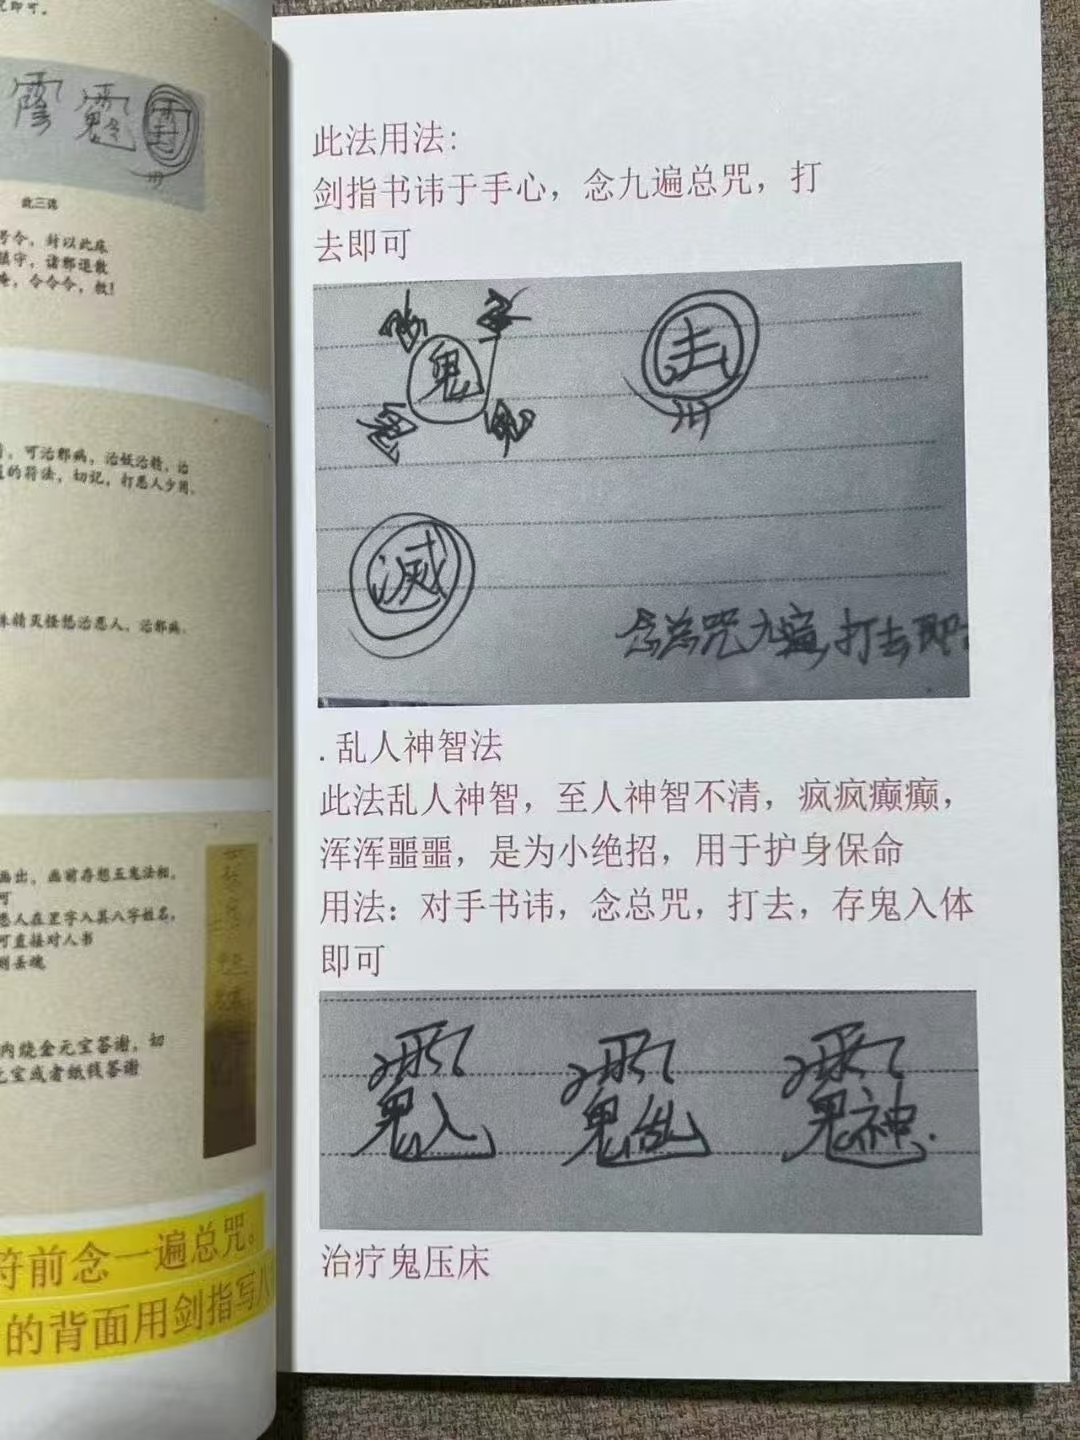 即可。
此三讳
号令，封以此床
镇守，诸邪退散
令令令，敕！
可治邪病，治妖治精，治
的符法，切记，打恶人少用。
精灭怪惩治恶人，治邪病。
画出，画前存想五鬼法相。
可
恶人在罡字入其八字姓名，
可直接对人书
则丢魂
内烧金元宝答谢，切
元宝或者纸钱答谢
符前念一遍总咒。
的背面用剑指写八
此法用法：
剑指书讳于手心，念九遍总咒，打
去即可
鬼
击
滅
念总咒九遍，打去即
.乱人神智法
此法乱人神智，至人神智不清，疯疯癫癫，
浑浑噩噩，是为小绝招，用于护身保命
用法：对手书讳，念总咒，打去，存鬼入体
即可
治疗鬼压床